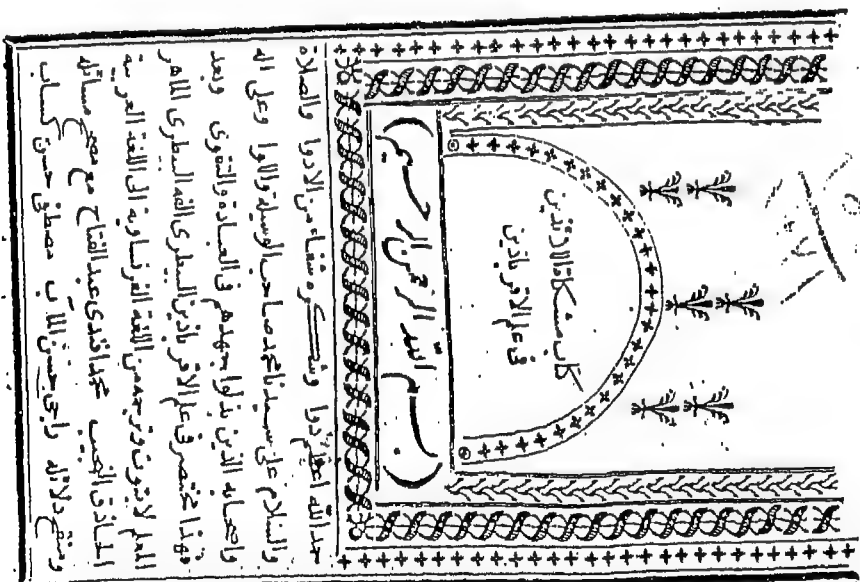 كتاب مشكاة اللائذين
فى علم الاقرباذين
بسم الله الرحمن الرحيم
حمد الله اعظم دوا وشكره شفاء من الادوا والصلاة
والسلام على سيدنا محمد صاحب الوسيلة واللوا وعلى اله
واصحابه الذين بذلوا جهدهم فى العبادة والتقوى وبعد
فهذا مختصر فى علم الاقرباذين البيطرى الفه البيطرى الماهر
المعلم لابتوت وترجمه من اللغة الفرنساوية الى اللغة العربية
الحاذق النجيب محمد افندى عبد الفتاح مع مصحح مسائله
ومنقح دلائله راجى حسن المآب مصطفى حسن كساب